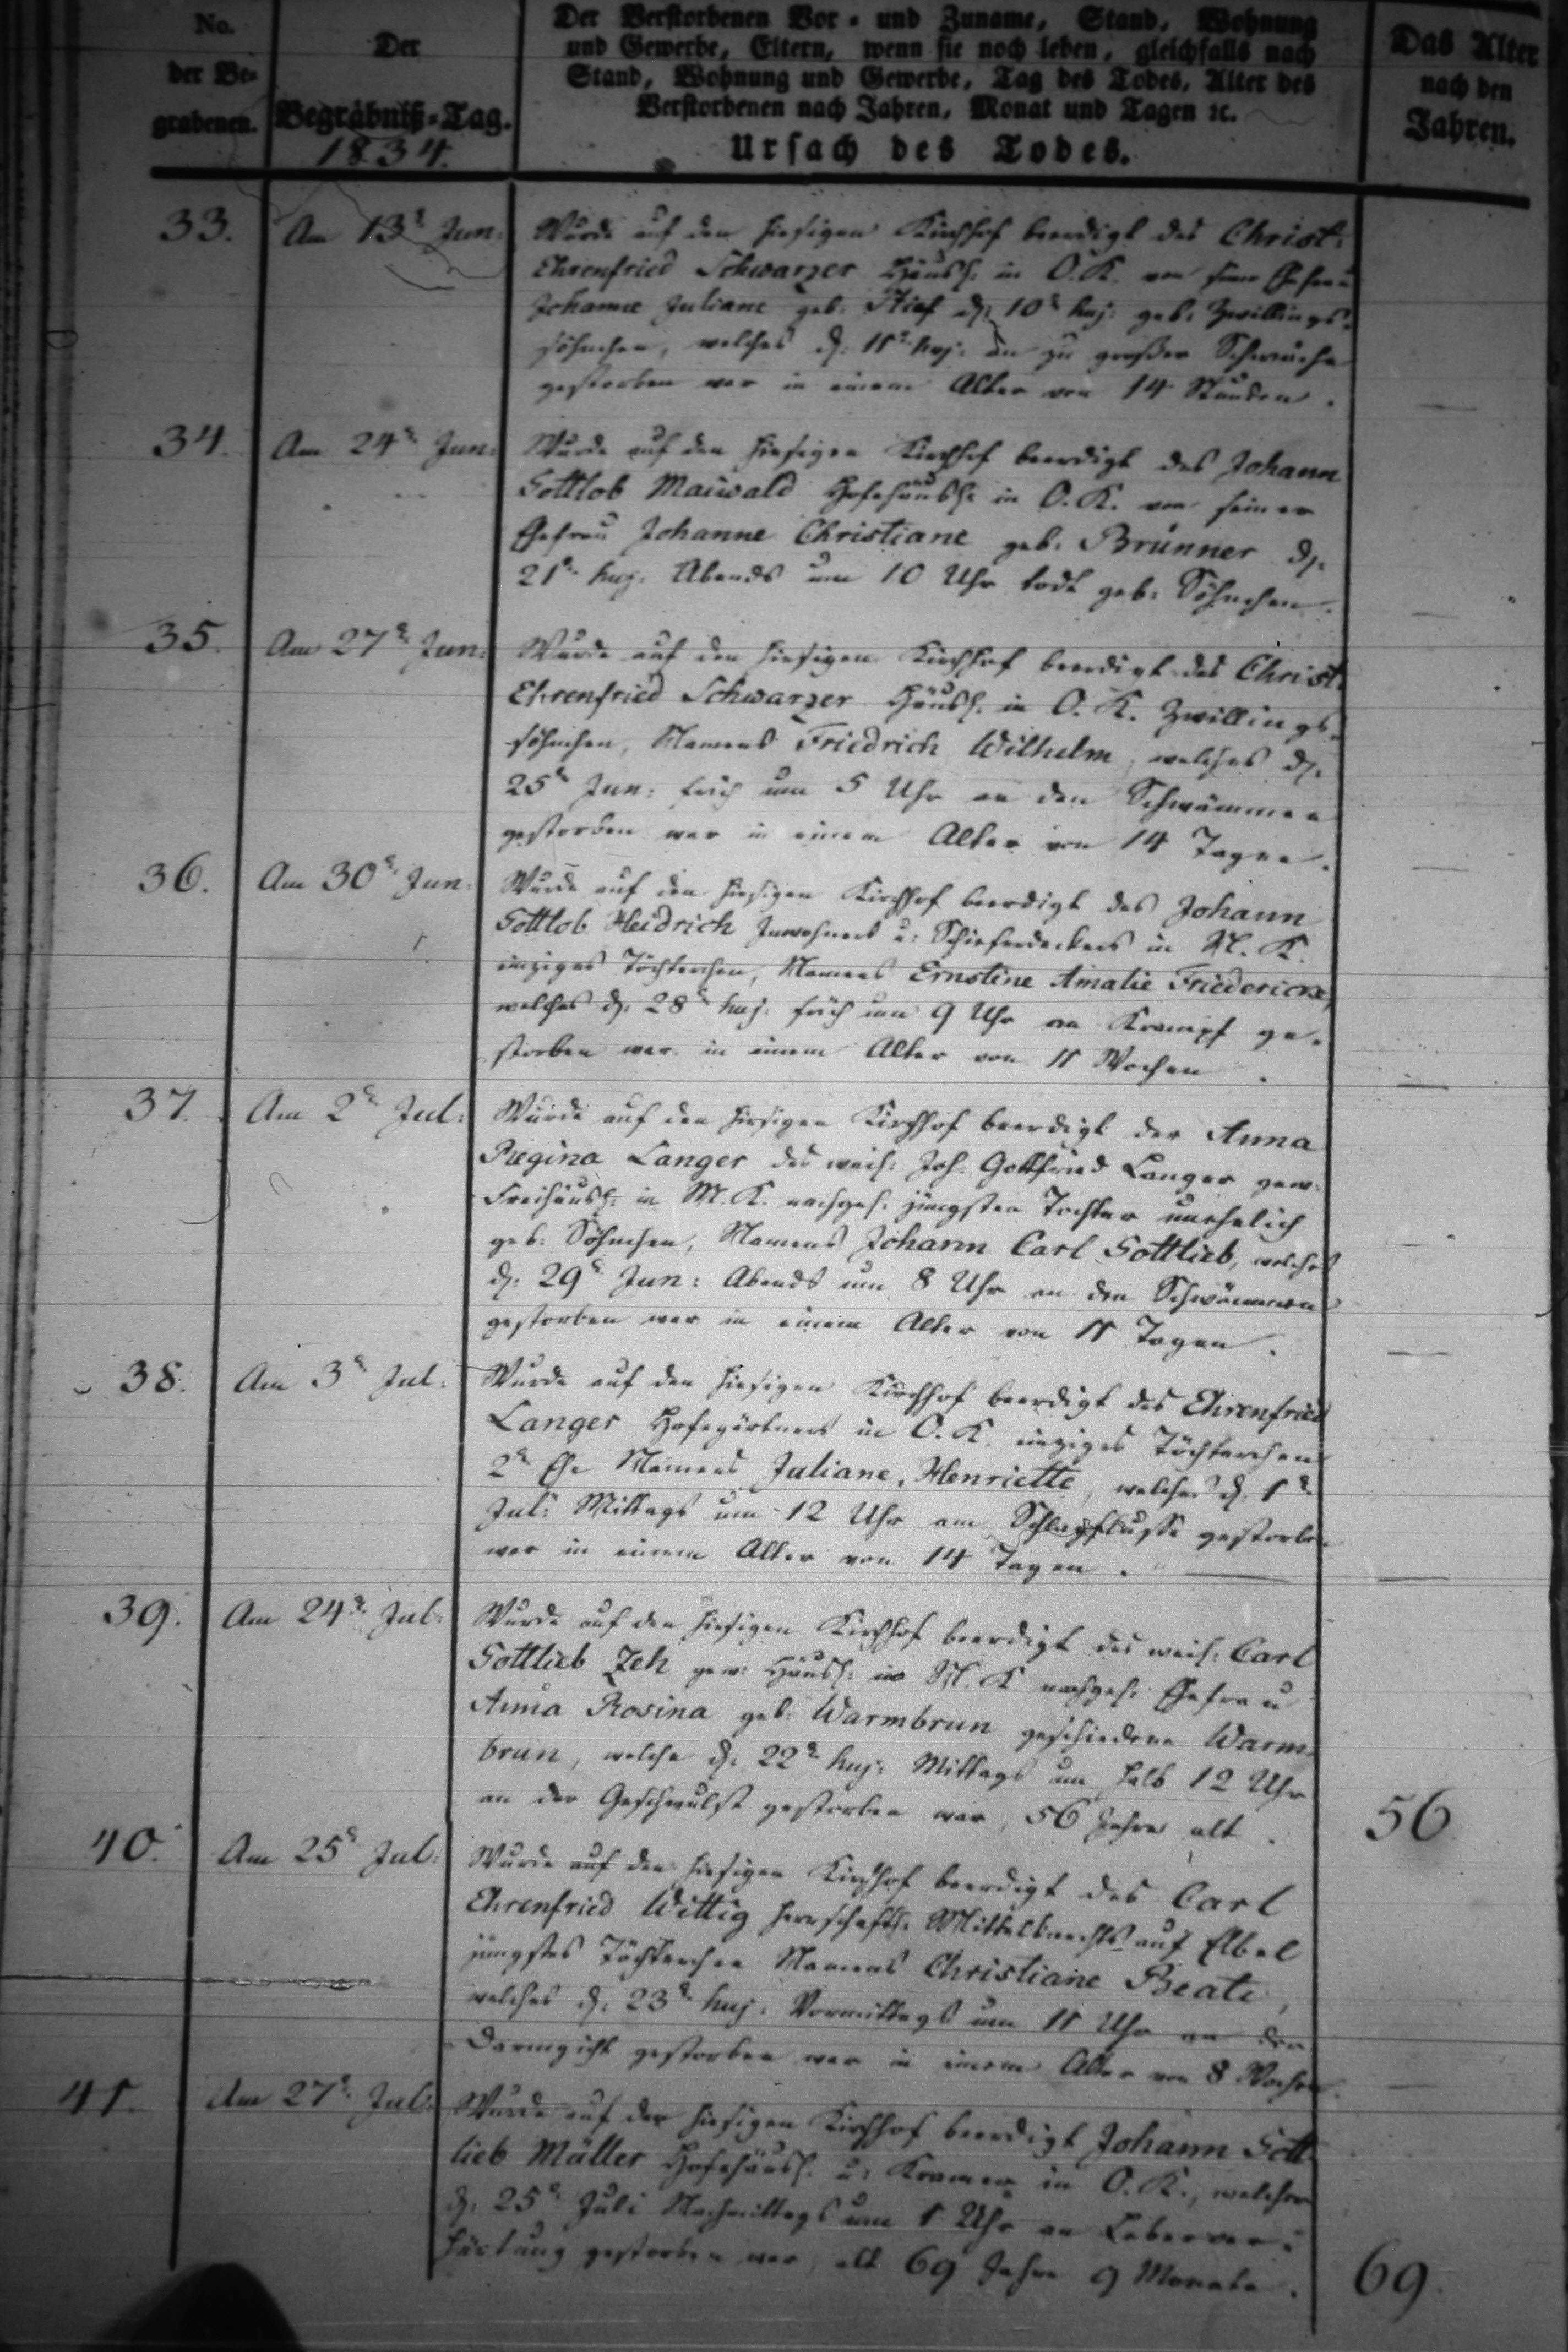 No.
der Be-
grabenen.
Der
Begräbniß-Tag.
1834.
Der Verstorbenen Vor- und Zuname, Stand, Wohnung
und Gewerbe, Eltern, wenn sie noch leben, gleichfalls nach
Stand, Wohnung und Gewerbe, Tag des Todes, Alter des
Verstorbenen nach Jahren, Monat und Tagen ꝛc.
Ursach des Todes.
Das Alter
nach den
Jahren.
33. Am 13t Jun: Wurde auf den hiesigen Kirchhof beerdigt des Christ:
Ehrenfried Schwarzer Häusl: in O. K. von seiner Ehefrau
Johanne Juliane geb: Stief d: 10t huj: geb: Zwillings-
söhnchen, welches d: 11t huj: an zu großer Schwäche
gestorben war in einem Alter von 14 Stunden.
34. Am 24t Jun: Wurde auf den hiesigen Kirchhof beerdigt des Johann
Gottlob Maiwald Hofehäusl: in O. K. von seiner
Ehefrau Johanne Christiane geb: Brünner d:
21t huj: Abends um 10 Uhr todt geb: Söhnchen.
35. Am 27t Jun: Wurde auf den hiesigen Kirchhof beerdigt des Christ:
Ehrenfried Schwarzer Häusl: in O. K. Zwillings-
söhnchen, Namens Friedrich Wilhelm, welches d:
25t Jun: früh um 5 Uhr an den Schwämmen
gestorben war in einem Alter von 14 Tagen.
36. Am 30t Jun: Wurde auf den hiesigen Kirchhof beerdigt des Johann
Gottlob Heidrich Inwohners u: Schieferdeckers in N. K.
einziges Töchterchen, Namens Ernstine Amalie Friedericke,
welches d: 28t huj: früh um 9 Uhr an Krampf ge-
storben war in einem Alter von 11 Wochen.
37. Am 2t Jul: Wurde auf den hiesigen Kirchhof beerdigt der Anna
Regina Langer des weil: Joh: Gottfried Langer gew:
Freihäusl: in M. K. nachgel: jüngsten Tochter unehelich
geb: Söhnchen, Namens Johann Carl Gottlieb, welches
d: 29t Jun: Abends um 8 Uhr an den Schwämmen
gestorben war in einem Alter von 11 Tagen.
38. Am 3t Jul: Wurde auf den hiesigen Kirchhof beerdigt des Ehrenfried
Langer Hofegärtners in O. K. einziges Töchterchen
2t Ehe Namens Juliane Henriette, welches d: 1t
Jul: Mittags um 12 Uhr am Schlagflusse gestorben
war in einem Alter von 14 Tagen.
39. Am 24t Jul: Wurde auf den hiesigen Kirchhof beerdigt des weil: Carl
Gottlieb Zeh gew: Häusl: in N. K. nachgel: Ehefrau
Anna Rosina geb: Warmbrun geschiedene Warm-
brun, welche d: 22t huj: Mittags um halb 12 Uhr
an der Geschwulst gestorben war, 56 Jahre alt. 56
40. Am 25t Jul: Wurde auf den hiesigen Kirchhof beerdigt des Carl
Ehrenfried Wittig herrschaftl: Mittelknechts auf Elbel
jüngstes Töchterchen Namens Christiane Beate,
welches d: 23t huj: Vormittags um 11 Uhr an der
Darmgicht gestorben war in einem Alter von 8 Wochen.
41. Am 27t Jul: Wurde auf den hiesigen Kirchhof beerdigt Johann Gott-
lieb Müller Hofehäusl: u: Kramer in O. K., welcher
d: 25t Juli Nachmittags um 1 Uhr an Leberver-
härtung gestorben war, alt 69 Jahre 9 Monate. 69.